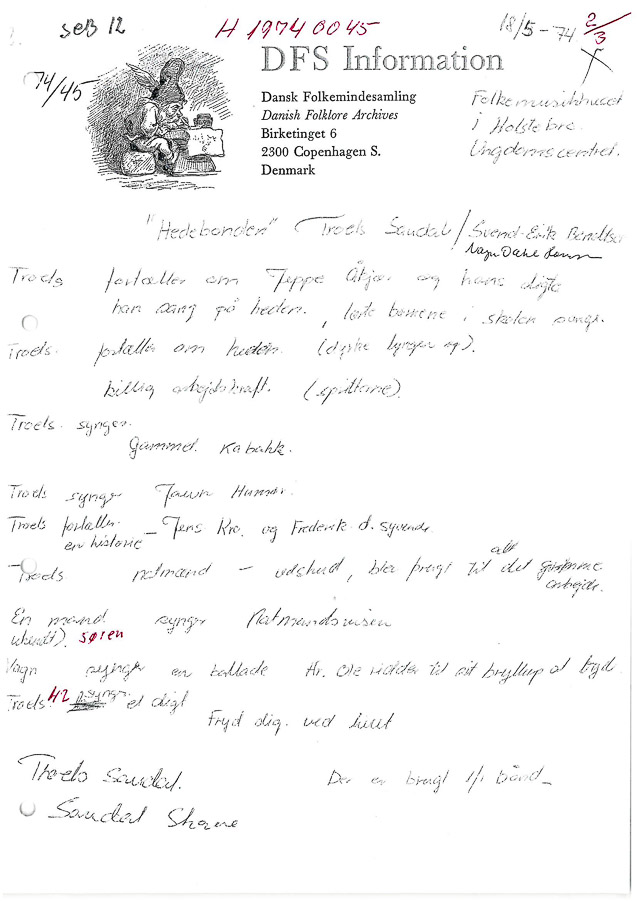 SEB 12
H 1974 0045
18/5 - 74
2/3
74/45
DFS Information
Dansk Folkemindesamling
Danish Folklore Archives
Birketinget 6
2300 Copenhagen S.
Denmark
Folkemusikhuset
i Holstebro.
Ungdomscentret.
"Hedebonden" Troels Sandal / Svend-Erik
Troels fortæller om Jeppe Åkjær og hans digte
han sang på heden. , lærte børnene i skolen synge.
Troels. fortæller om heden. (dyrke lynger op).
billig arbejdskraft.
Troels. synger.
Gammel Kabakk.
Troels synger Jawn
Troels fortæller en historie - Jens Kro. og Frederik d. syvende
Troels natmænd - udskud, blev brugt til alt det arbejde.
En mand synger Natmandsvisen
ukendt). søren
Vagn synger en ballade Hr. Ole ridder til sit bryllup at byde
Troels. 42 et digt
Fryd dig. ved livet
Troels Sandal.
Der er brugt 1/1 bånd_
Sandal